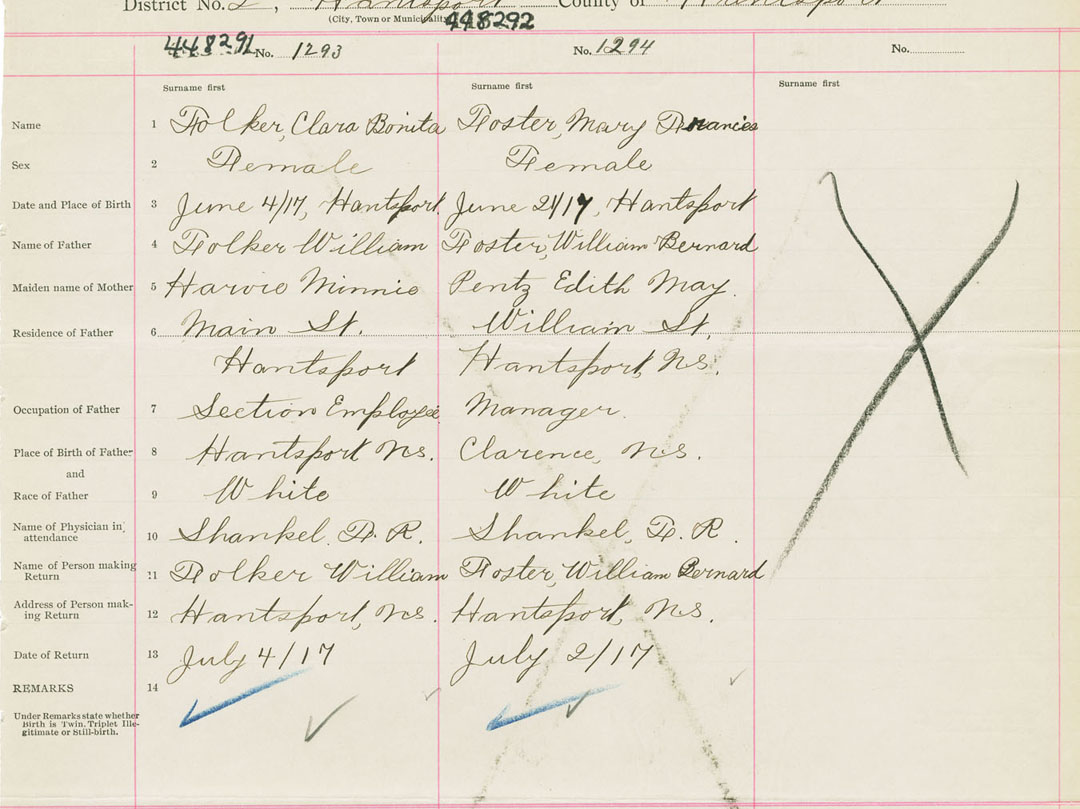 District No. 2, Hantsport County of
(City, Town or Municipality)
448292
448291 No. 1293 No. 1294 No.
Surname first Surname first Surname first
Name 1 Folker, Clara Bonita Foster, Mary Francies
Sex 2 Female Female
Date and Place of Birth 3 June 4/17, Hantsport June 21/17, Hantsport
Name of Father 4 Folker William Foster, William Bernard
Maiden name of Mother 5 Harvie Minnie Pentz Edith May.
Residence of Father 6 Main St. William St.
Hantsport Hantsport, N.S.
Occupation of Father 7 Section Employee Manager.
Place of Birth of Father 8 Hantsport N.S. Clarence, N.S.
and
Race of Father 9 White White
Name of Physician in attendance 10 Shankel, F. R. Shankel, F. R.
Name of Person making Return 11 Folker William Foster, William Bernard
Address of Person mak-ing Return 12 Hantsport, N.S. Hantsport, N.S.
Date of Return 13 July 4/17 July 2/17
REMARKS 14
Under Remarks state whether
Birth is Twin, Triplet Ille-
gitimate or Still-birth.